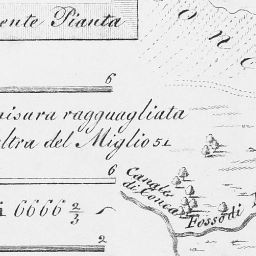 ente Pianta
6
isura ragguagliata
ltra del Miglio 51
6
6666 2/3
2
Canale
di Conca
Fosso di